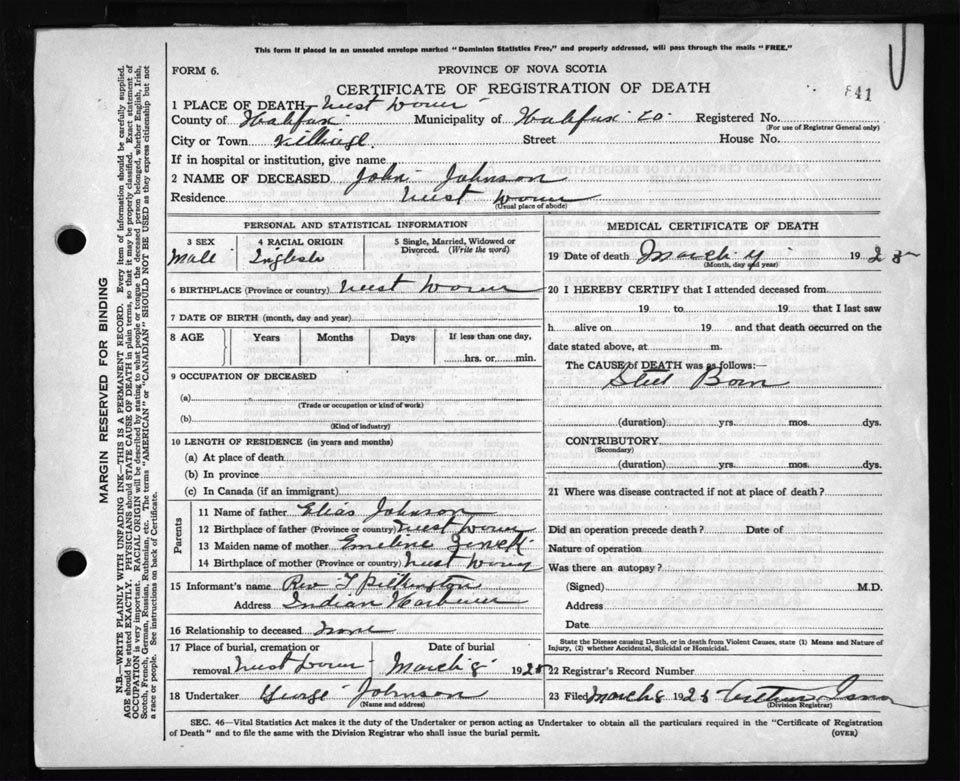 This form if placed in an unsealed envelope marked "Dominion Statistics Free," and properly addressed, will pass through the mails "FREE."
FORM 6.
PROVINCE OF NOVA SCOTIA
CERTIFICATE OF REGISTRATION OF DEATH
841
1 PLACE OF DEATH West Dover
County of Halifax Municipality of Halifax Co. Registered No.
(For use of Registrar General only)
City or Town Village Street House No.
If in hospital or institution, give name
2 NAME OF DECEASED John Johnson
Residence West Dover
(Usual place of abode)
PERSONAL AND STATISTICAL INFORMATION
3 SEX 4 RACIAL ORIGIN 5 Single, Married, Widowed or Divorced. (Write the word)
Male English
6 BIRTHPLACE (Province or country) West Dover
7 DATE OF BIRTH (month, day and year)
8 AGE Years Months Days If less than one day,
hrs. or min.
9 OCCUPATION OF DECEASED
(a)
(Trade or occupation or kind of work)
(b)
(Kind of industry)
10 LENGTH OF RESIDENCE (in years and months)
(a) At place of death
(b) In province
(c) In Canada (if an immigrant)
Parents
11 Name of father Elias Johnson
12 Birthplace of father (Province or country) West Dover
13 Maiden name of mother Emeline
14 Birthplace of mother (Province or country) West Dover
15 Informant's name Rev T Pilkington
Address Indian Harbour
16 Relationship to deceased None
17 Place of burial, cremation or Date of burial
removal West Dover March 8 1925
18 Undertaker George Johnson
(Name and address)
MEDICAL CERTIFICATE OF DEATH
19 Date of death March 1925
(Month, day and year)
20 I HEREBY CERTIFY that I attended deceased from
19 to 19 that I last saw
h alive on 19 and that death occurred on the
date stated above, at m.
The CAUSE of DEATH was as follows:—
Still Born
(duration) yrs. mos. dys.
CONTRIBUTORY
(Secondary)
(duration) yrs. mos. dys.
21 Where was disease contracted if not at place of death?
Did an operation precede death? Date of
Nature of operation
Was there an autopsy?
(Signed) M.D.
Address
Date
State the Disease causing Death, or in death from Violent Causes, state (1) Means and Nature of
Injury, (2) whether Accidental, Suicidal or Homicidal.
22 Registrar's Record Number
23 Filed March 8 1925 Arthur
(Division Registrar)
SEC. 46—Vital Statistics Act makes it the duty of the Undertaker or person acting as Undertaker to obtain all the particulars required in the "Certificate of Registration
of Death" and to file the same with the Division Registrar who shall issue the burial permit. (OVER)
MARGIN RESERVED FOR BINDING
N.B.—WRITE PLAINLY WITH UNFADING INK—THIS IS A PERMANENT RECORD. Every item of information should be carefully supplied.
AGE should be stated EXACTLY. PHYSICIANS should STATE CAUSE OF DEATH in plain terms, so that it may be properly classified. Exact statement of
OCCUPATION is very important. RACIAL ORIGIN will be described by stating to what people or tongue the deceased person belonged, whether English, Irish,
Scotch, French, German, Russian, Ruthenian, etc. The terms "AMERICAN" or "CANADIAN" SHOULD NOT BE USED as they express citizenship but not
a race or people. See instructions on back of Certificate.